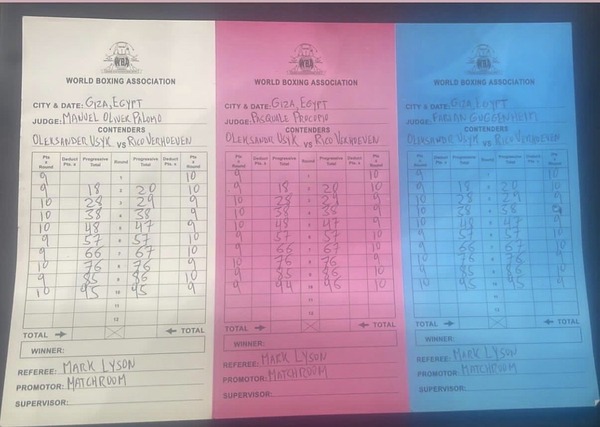 WBA
WORLD BOXING ASSOCIATION
CITY & DATE: GIZA, EGYPT
JUDGE: MANUEL OLIVER PALOMO
CONTENDERS
OLEKSANDER USYK VS RICO VERHOEVEN
Pts x Round Deduct Pts. x Progressive Total Round Progressive Total Deduct Pts. x Pts x Round
9 1 10
9 18 2 20 10
10 28 3 29 9
10 38 4 38 9
10 48 5 47 9
9 57 6 57 10
9 66 7 67 10
10 76 8 76 9
9 85 9 86 10
10 95 10 95 9
11
12
TOTAL → ← TOTAL
WINNER:
REFEREE: MARK LYSON
PROMOTOR: MATCHROOM
SUPERVISOR:
WBA
WORLD BOXING ASSOCIATION
CITY & DATE: GIZA, EGYPT
JUDGE: PASQUALE PROCOPIO
CONTENDERS
OLEKSANDR USYK VS RICO VERHOEVEN
Pts x Round Deduct Pts. x Progressive Total Round Progressive Total Deduct Pts. x Pts x Round
9 1 10
9 18 2 20 10
10 28 3 29 9
10 38 4 38 9
10 48 5 47 9
9 57 6 57 10
9 66 7 67 10
10 76 8 76 9
9 85 9 86 10
9 94 10 96 10
11
12
TOTAL → ← TOTAL
WINNER:
REFEREE: MARK LYSON
PROMOTOR: MATCHROOM
SUPERVISOR:
WBA
WORLD BOXING ASSOCIATION
CITY & DATE: GIZA, EGYPT
JUDGE: GUGGENHEIM
CONTENDERS
OLEKSANDR USYK VS RICO VERHOEVEN
Pts x Round Deduct Pts. x Progressive Total Round Progressive Total Deduct Pts. x Pts x Round
9 1 10
9 18 2 20 10
10 28 3 29 9
10 38 4 38 9
10 48 5 47 9
9 57 6 57 10
9 66 7 67 10
10 76 8 76 9
9 85 9 86 10
10 95 10 95 9
11
12
TOTAL → ← TOTAL
WINNER:
REFEREE: MARK LYSON
PROMOTOR: MATCHROOM
SUPERVISOR: